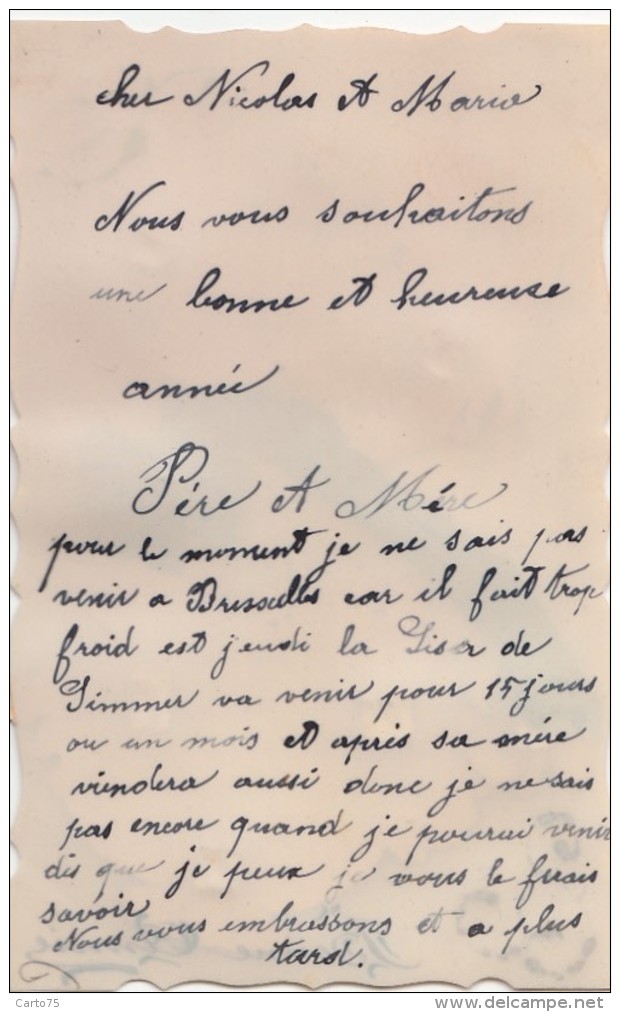 cher Nicolas et Maria
Nous vous souhaitons
une bonne et heureuse
année
Père et Mère
pour le moment je ne sais pas
venir a Bruxselles car il fait trop
froid est jeudi la Lisa de
Simmer va venir pour 15 jours
ou un mois et après sa mère
viendera aussi donc je ne sais
pas encore quand je pourai venir
dis que je peux je vous le frais
savoir
Nous vous embrassons et a plus
tard.
Carto75
delcampe.net